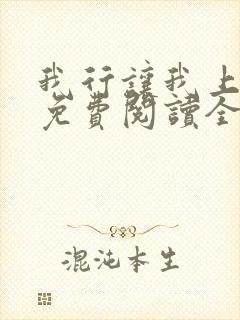 我行讓我上
免費閱讀全
混沌本生